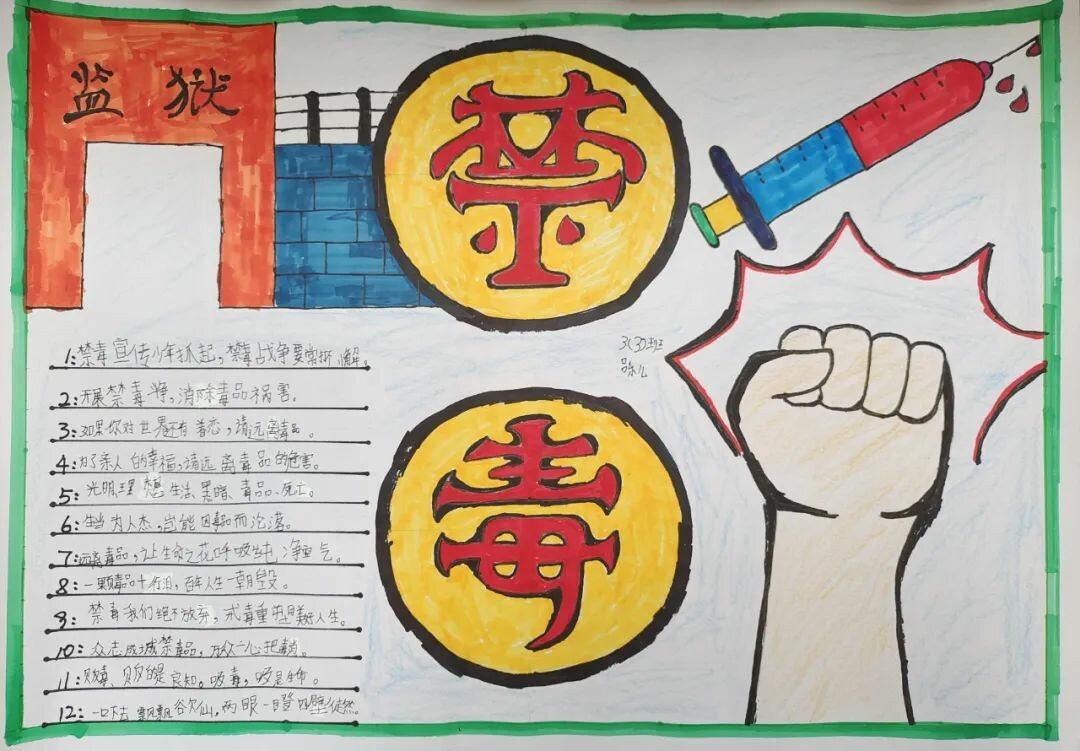 监狱
禁
毒
3(3)班
1:禁毒宣传少年抓起,禁毒战争要常抓懈。
2:开展禁毒争,消除毒品祸害。
3:如果你对世界还有着恋,请远离毒品。
4:为了亲人的幸福,请远离毒品的危害。
5:光明理想生活、黑暗、毒品、死亡。
6:生当为人杰,岂能因毒品而沦落。
7:远离毒品,让生命之花呼吸纯净空气。
8:一颗毒品十行泪,百年人生一朝毁。
9:禁毒我们绝不放弃,戒毒重塑美好人生。
10:众志成城禁毒品,万众一心把毒消。
11:贩毒、贩的是良知。吸毒,吸是生命。
12:一口下去飘飘欲仙,两眼一瞪四壁徒然。